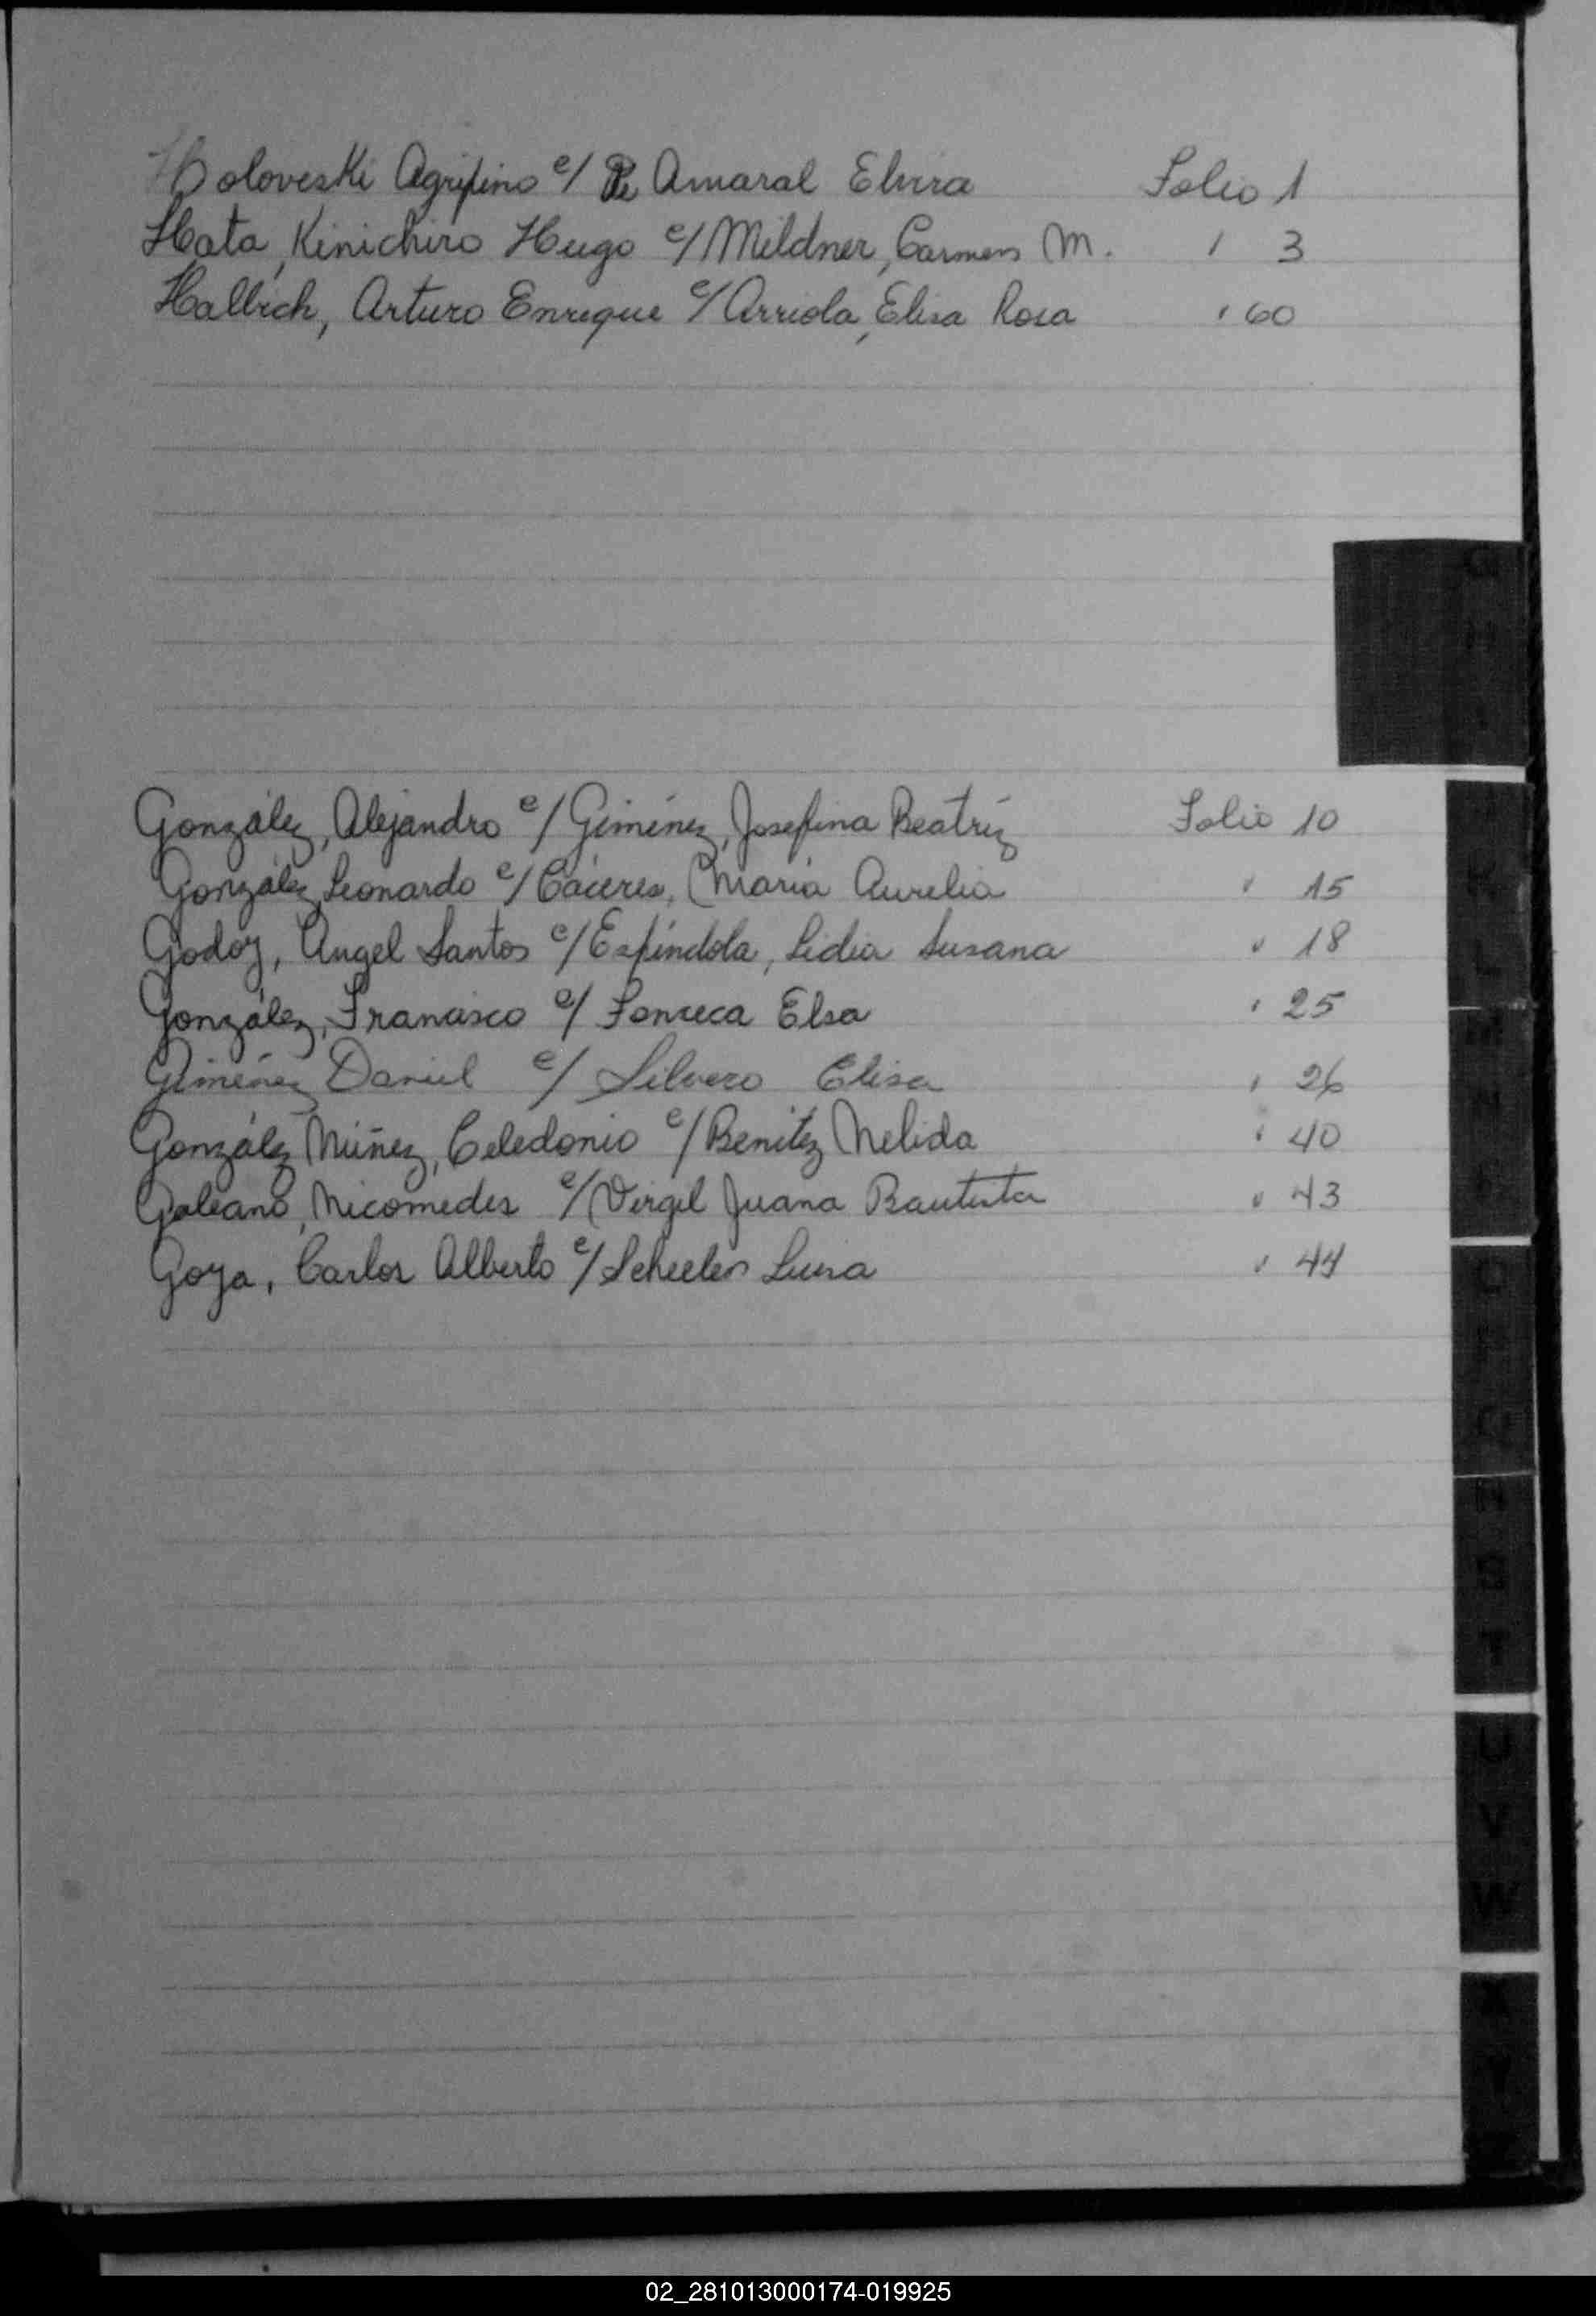 Holoveski Agripino c/ De Amaral Elvira Folio 1
Hata, Kinichiro Hugo c/ Mildner, Carmen M. " 3
Hallich, Arturo Enrique c/ Arriola, Elisa Rosa " 60
González, Alejandro c/ Giménez, Josefina Beatríz Folio 10
González, Leonardo c/ Cáceres, María Aurelia " 15
Godoy, Angel Santos c/ Espíndola, Lidia Susana " 18
González, Francisco c/ Fonseca Elsa " 25
Giménez Daniel c/ Silvero Elisa " 26
González Núñez, Celedonio c/ Benitez Nelida " 40
Galeano, Nicomedes c/ Virgil Juana Bautista " 43
Goya, Carlos Alberto c/ Scheelen Luisa " 44
G
H
I
K
L
M
N
O
P
Q
R
S
T
U
V
W
X
Y
Z
02_281013000174-019925